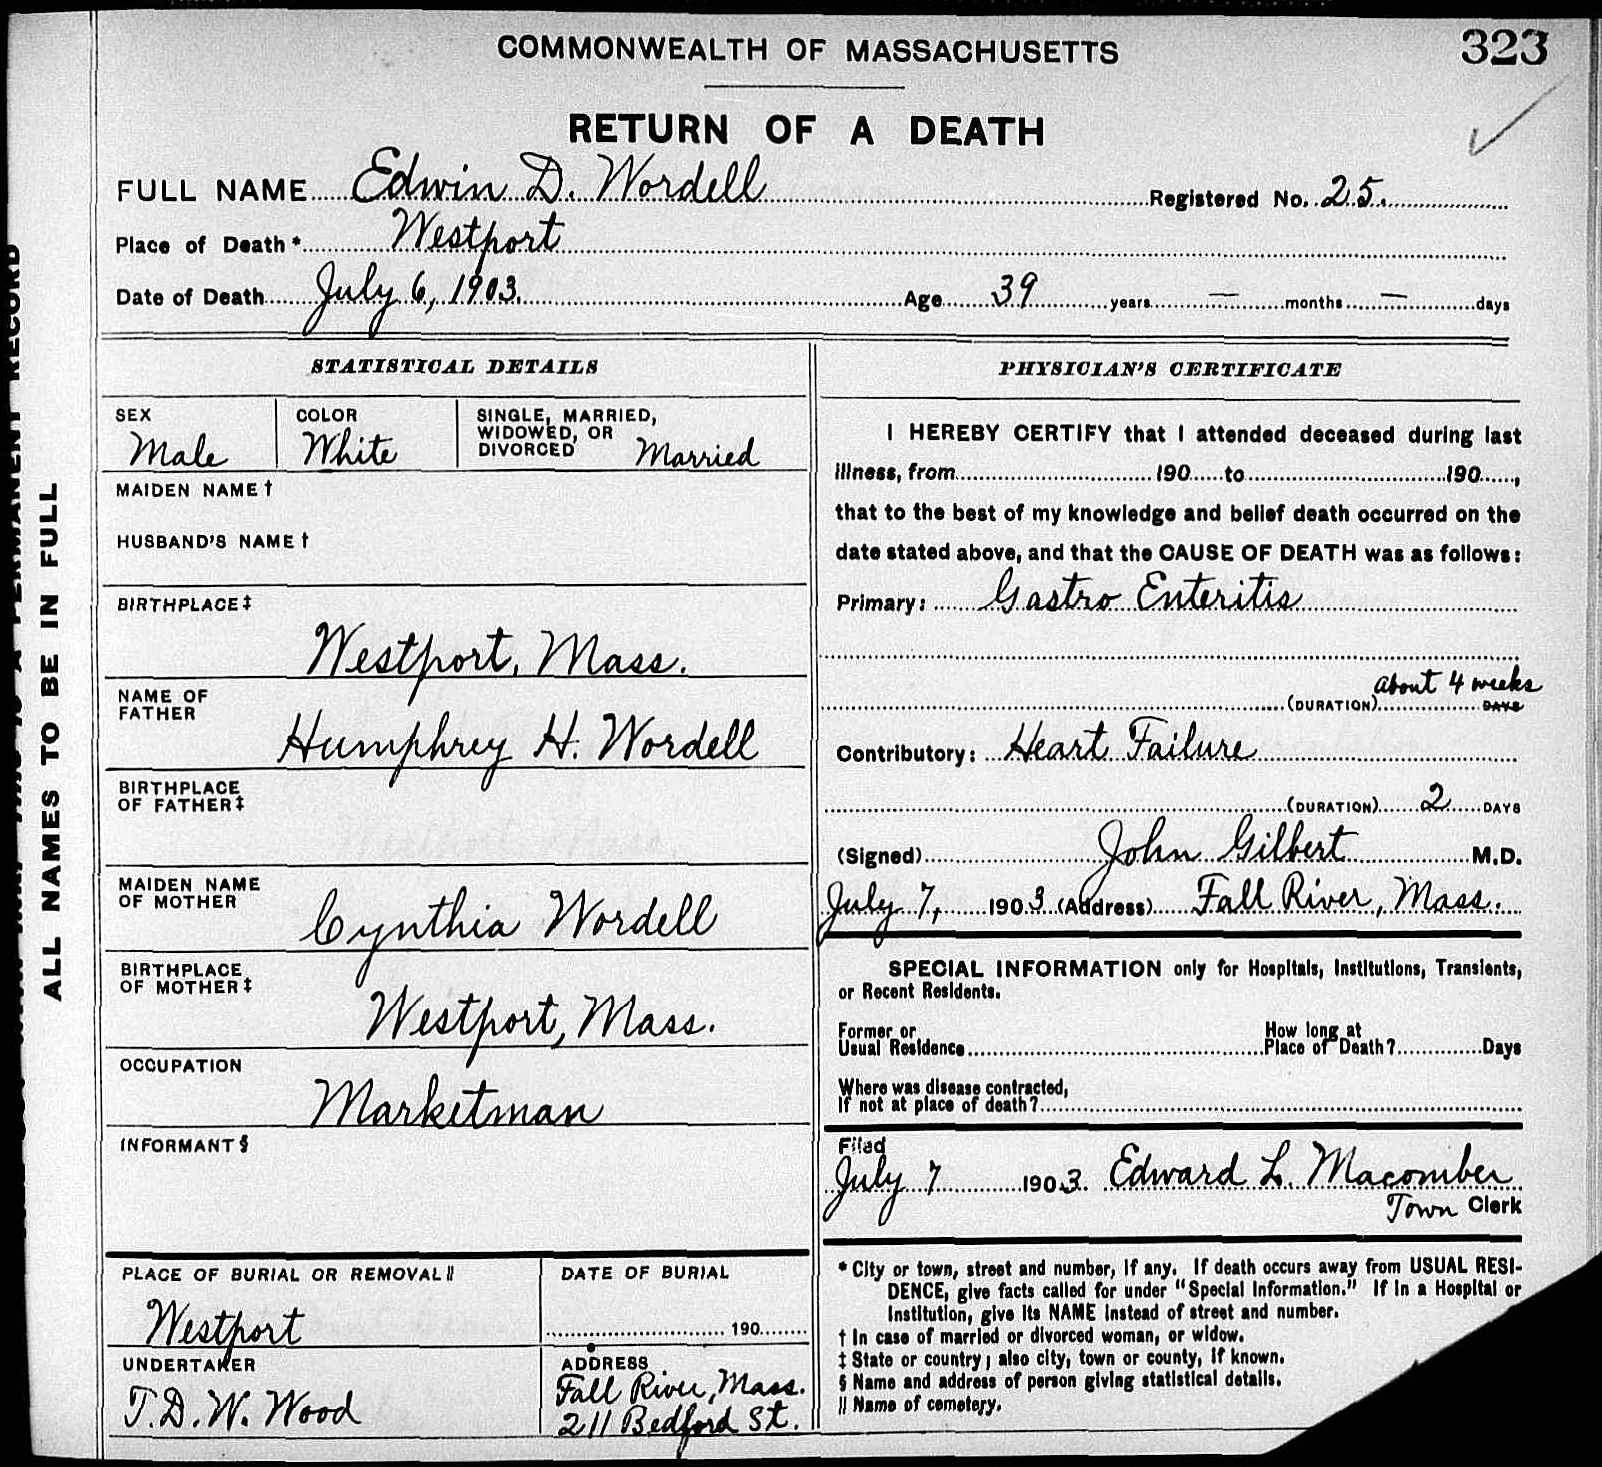 COMMONWEALTH OF MASSACHUSETTS
323
RETURN OF A DEATH
FULL NAME Edwin D. Wordell Registered No. 25.
Place of Death* Westport
Date of Death July 6, 1903. Age 39 years — months — days
STATISTICAL DETAILS
SEX
Male
COLOR
White
SINGLE, MARRIED,
WIDOWED, OR
DIVORCED Married
MAIDEN NAME†
HUSBAND'S NAME†
BIRTHPLACE‡
Westport, Mass.
NAME OF
FATHER
Humphrey H. Wordell
BIRTHPLACE
OF FATHER‡
MAIDEN NAME
OF MOTHER
Cynthia Wordell
BIRTHPLACE
OF MOTHER‡
Westport, Mass.
OCCUPATION
Marketman
INFORMANT§
PLACE OF BURIAL OR REMOVAL||
Westport
DATE OF BURIAL
190
UNDERTAKER
T. D. W. Wood
ADDRESS
Fall River, Mass.
211 Bedford St.
PHYSICIAN'S CERTIFICATE
I HEREBY CERTIFY that I attended deceased during last
illness, from 190 to 190 ,
that to the best of my knowledge and belief death occurred on the
date stated above, and that the CAUSE OF DEATH was as follows:
Primary: Gastro Enteritis
about 4 weeks
(DURATION) DAYS
Contributory: Heart Failure
(DURATION) 2 DAYS
(Signed) John Gilbert M.D.
July 7, 1903 (Address) Fall River, Mass.
SPECIAL INFORMATION only for Hospitals, Institutions, Transients,
or Recent Residents.
Former or
Usual Residence
How long at
Place of Death? Days
Where was disease contracted,
If not at place of death?
Filed
July 7 1903. Edward L. Macomber
Town Clerk
* City or town, street and number, if any. If death occurs away from USUAL RESI-
DENCE, give facts called for under "Special Information." If in a Hospital or
Institution, give its NAME instead of street and number.
† In case of married or divorced woman, or widow.
‡ State or country; also city, town or county, if known.
§ Name and address of person giving statistical details.
|| Name of cemetery.
ALL NAMES TO BE IN FULL
A PERMANENT RECORD